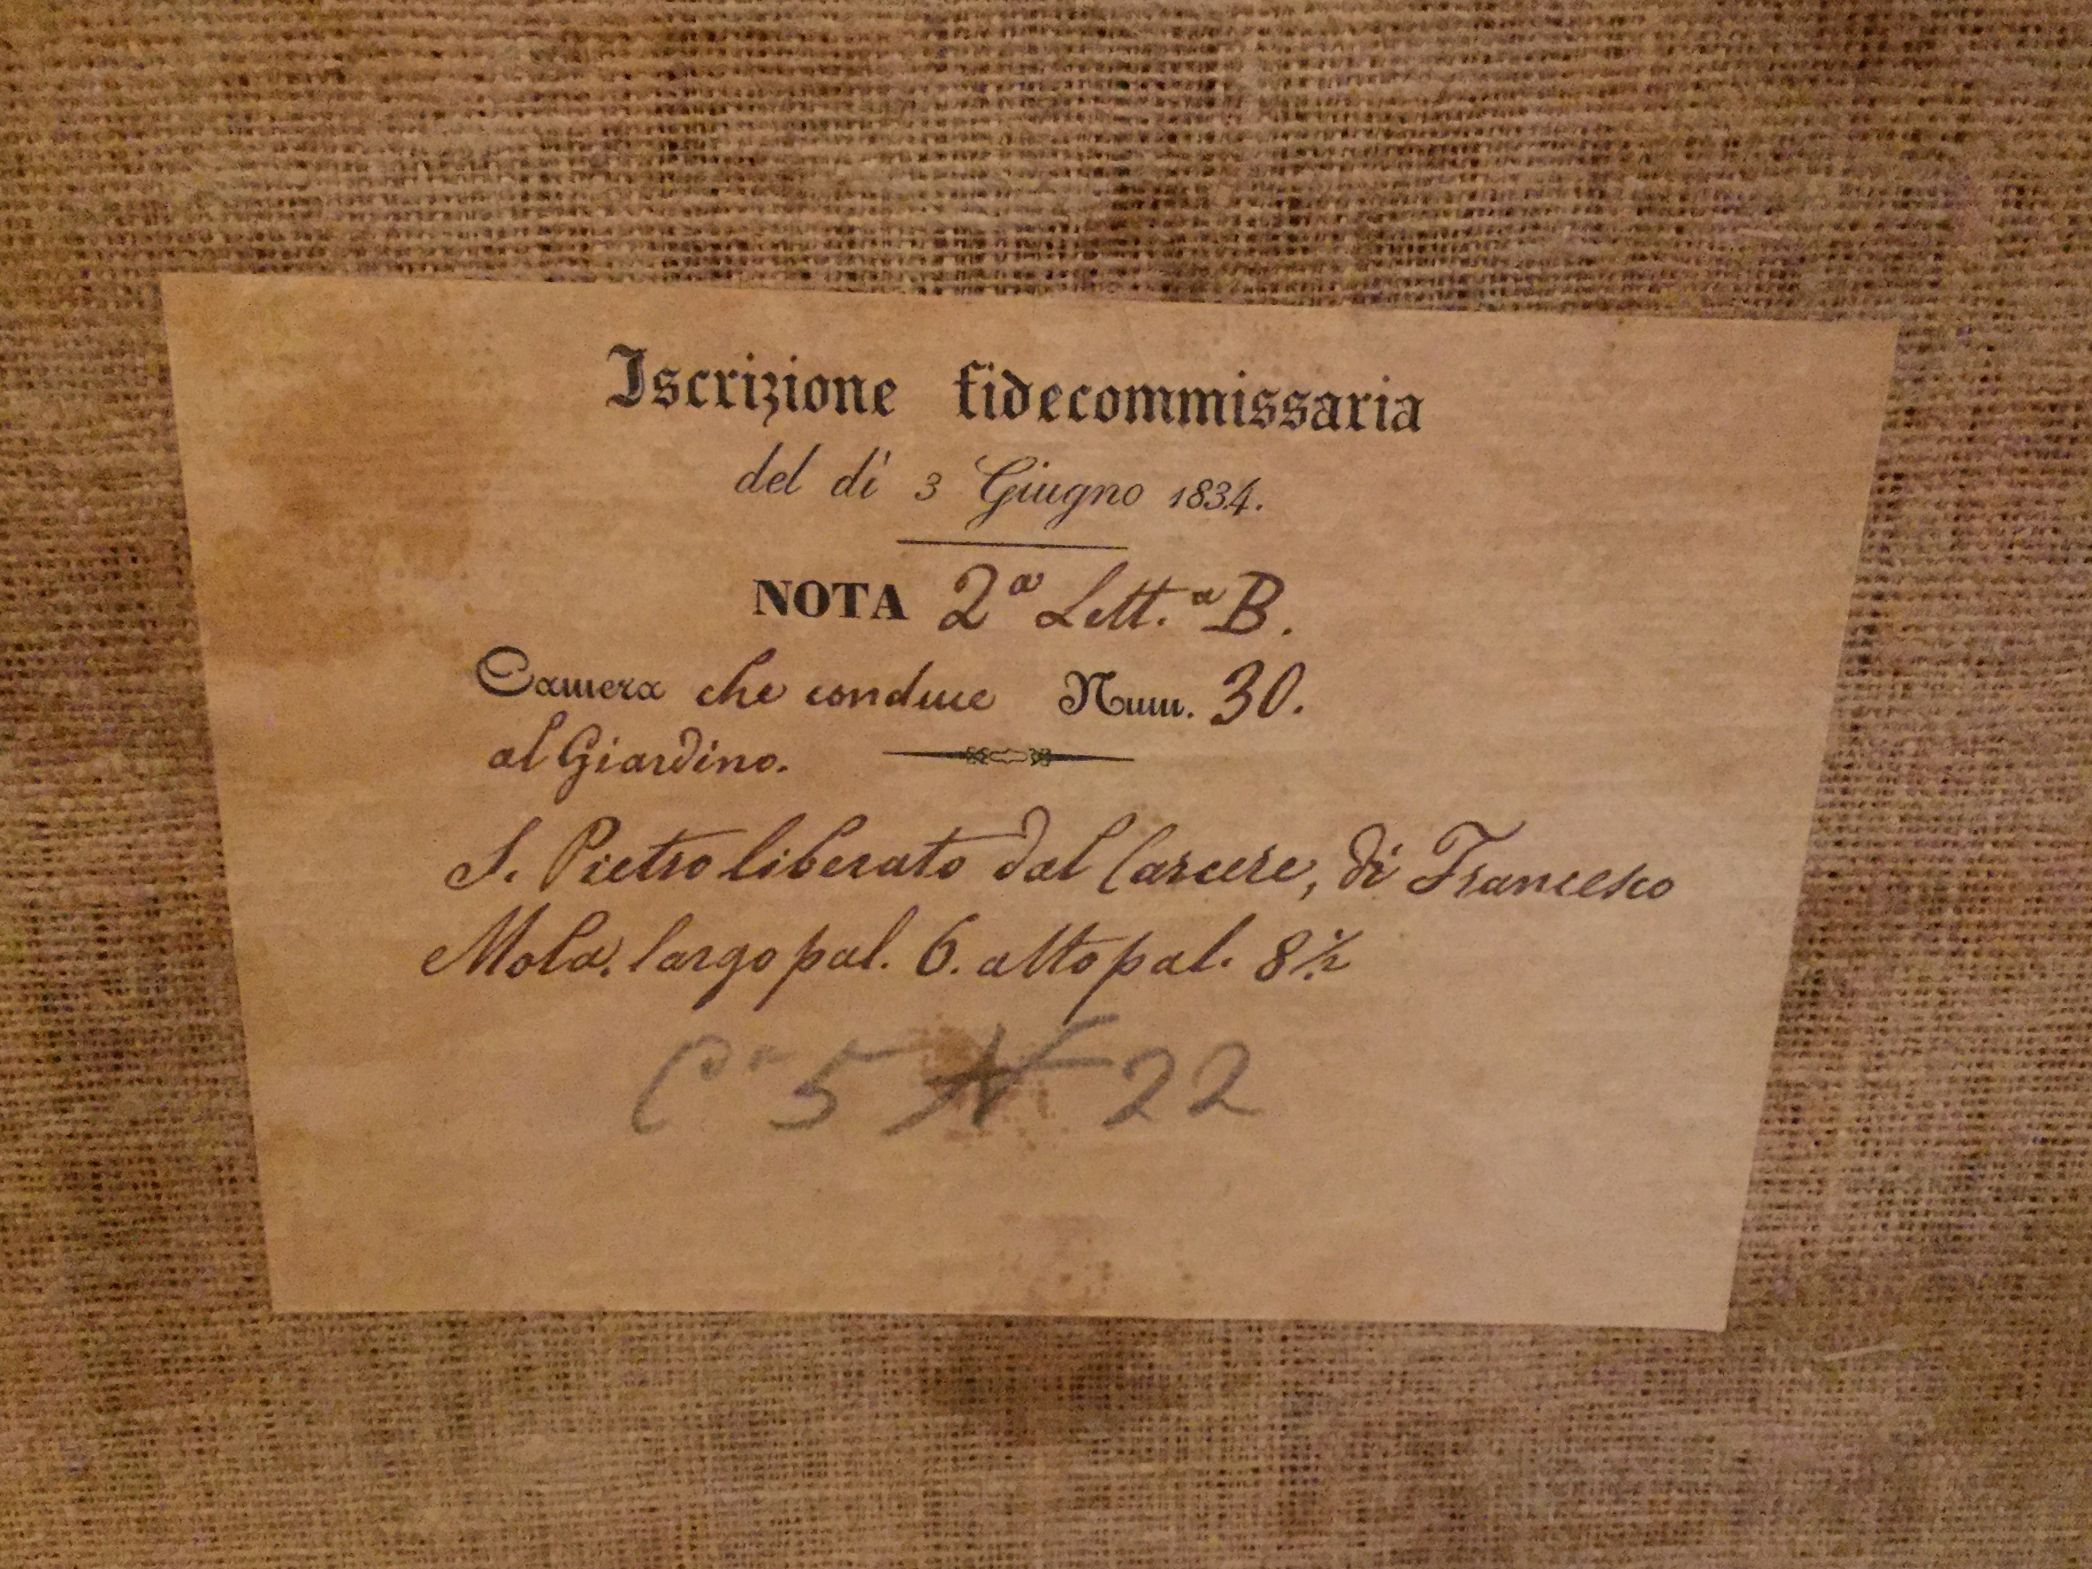 Iscrizione fidecommissaria
del dì 3 Giugno 1834.
NOTA 2ª Lett.ª B.
Camera che conduce Num. 30.
al Giardino.
S. Pietro liberato dal Carcere, di Francesco
Mola, largo pal. 6. alto pal. 8½
Cª 5 N 22